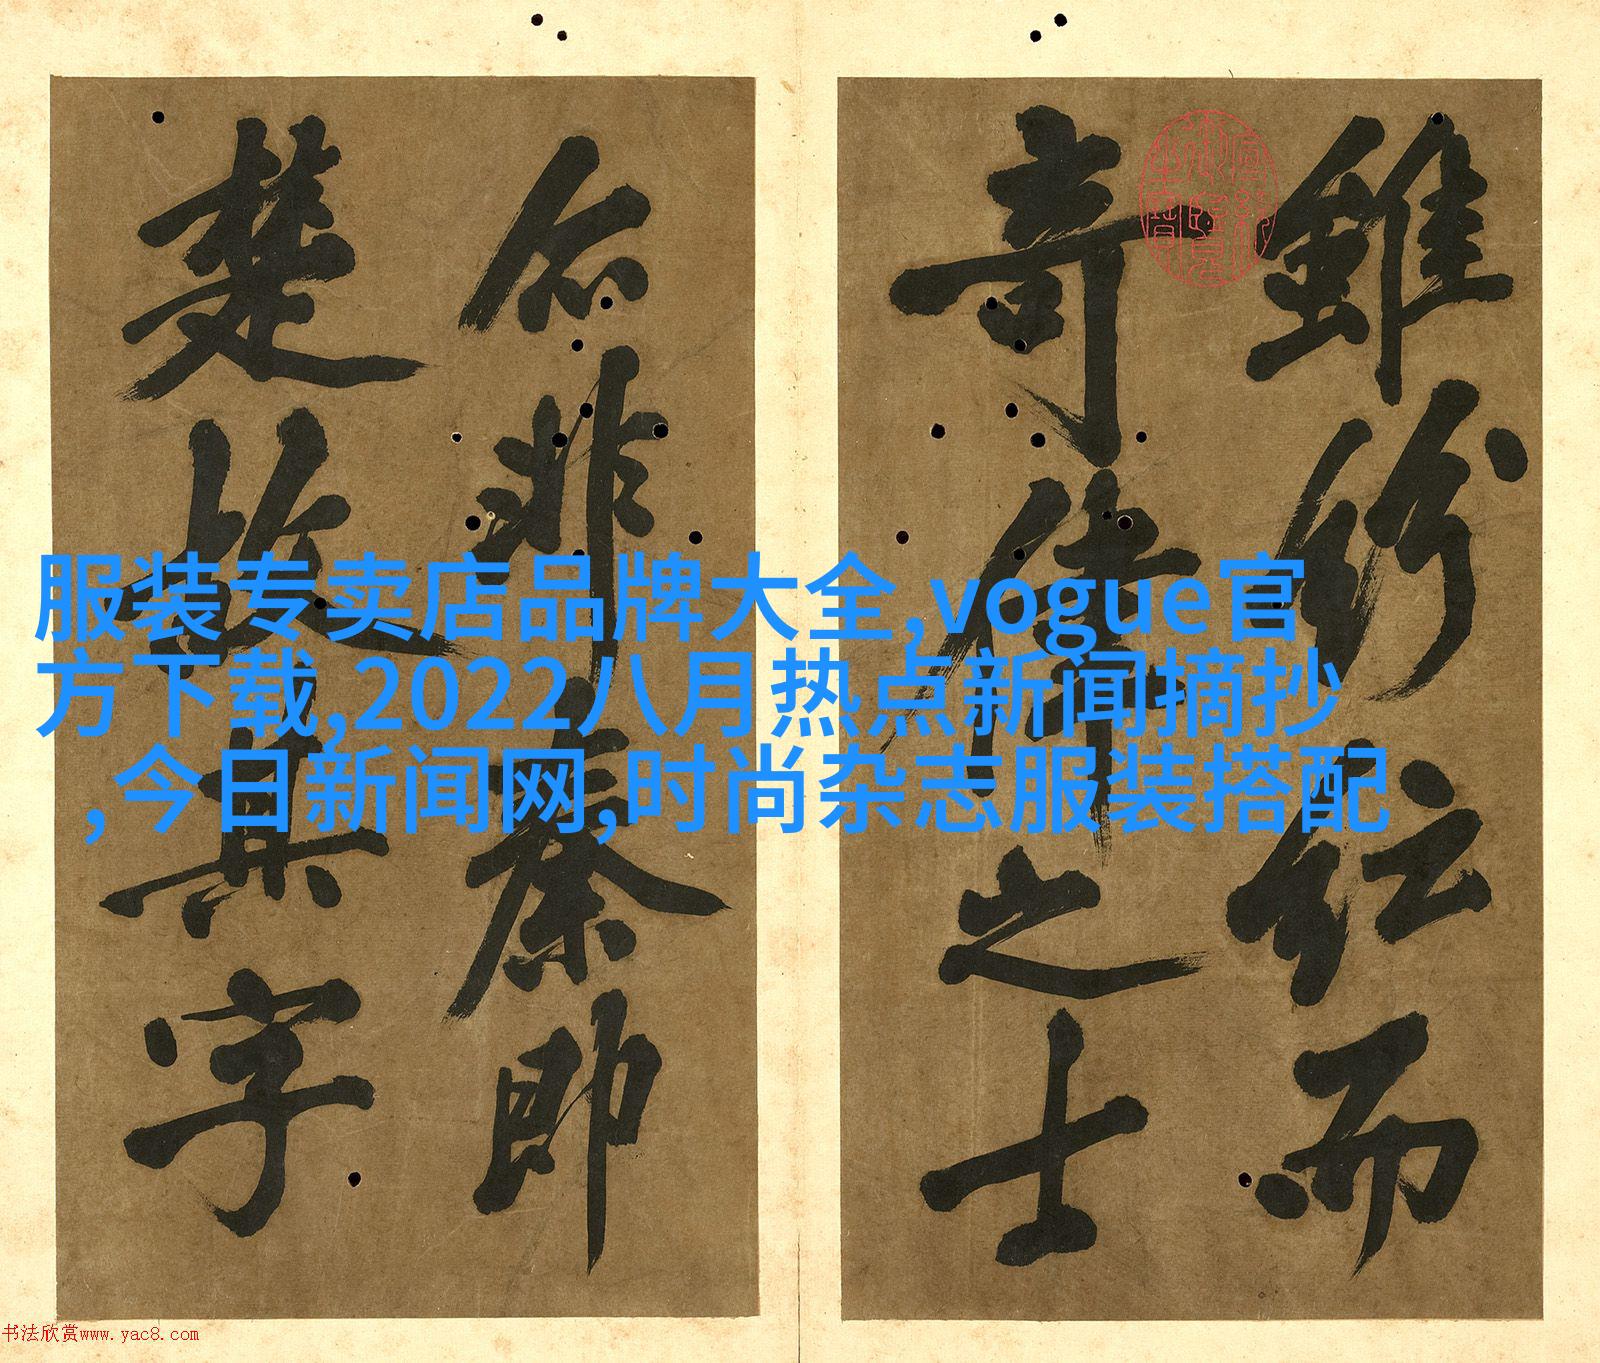 服装专卖店品牌大全,vogue官
方下载,2022八月热点新闻摘抄
,今日新闻网,时尚杂志服装搭配
雖紛紜而
奇偉之士
非秦即
楚故其字
書法欣赏www.yac8.com